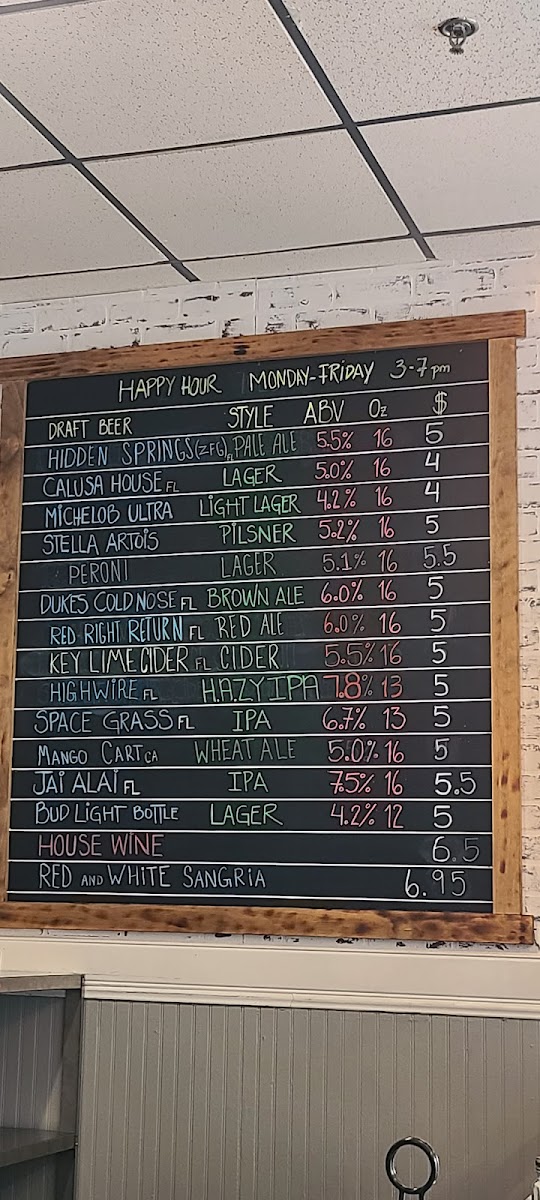 HAPPY HOUR MONDAY-FRIDAY 3-7pm
DRAFT BEER STYLE ABV Oz $
HIDDEN SPRINGS(ZFG)FL PALE ALE 5.5% 16 5
CALUSA HOUSE FL LAGER 5.0% 16 4
MICHELOB ULTRA LIGHT LAGER 4.2% 16 4
STELLA ARTOIS PILSNER 5.2% 16 5
PERONI LAGER 5.1% 16 5.5
DUKES COLD NOSE FL BROWN ALE 6.0% 16 5
RED RIGHT RETURN FL RED ALE 6.0% 16 5
KEY LIME CIDER FL CIDER 5.5% 16 5
HIGHWIRE FL HAZY IPA 7.8% 13 5
SPACE GRASS FL IPA 6.7% 13 5
MANGO CART CA WHEAT ALE 5.0% 16 5
JAI ALAI FL IPA 7.5% 16 5.5
BUD LIGHT BOTTLE LAGER 4.2% 12 5
HOUSE WINE 6.5
RED AND WHITE SANGRIA 6.95